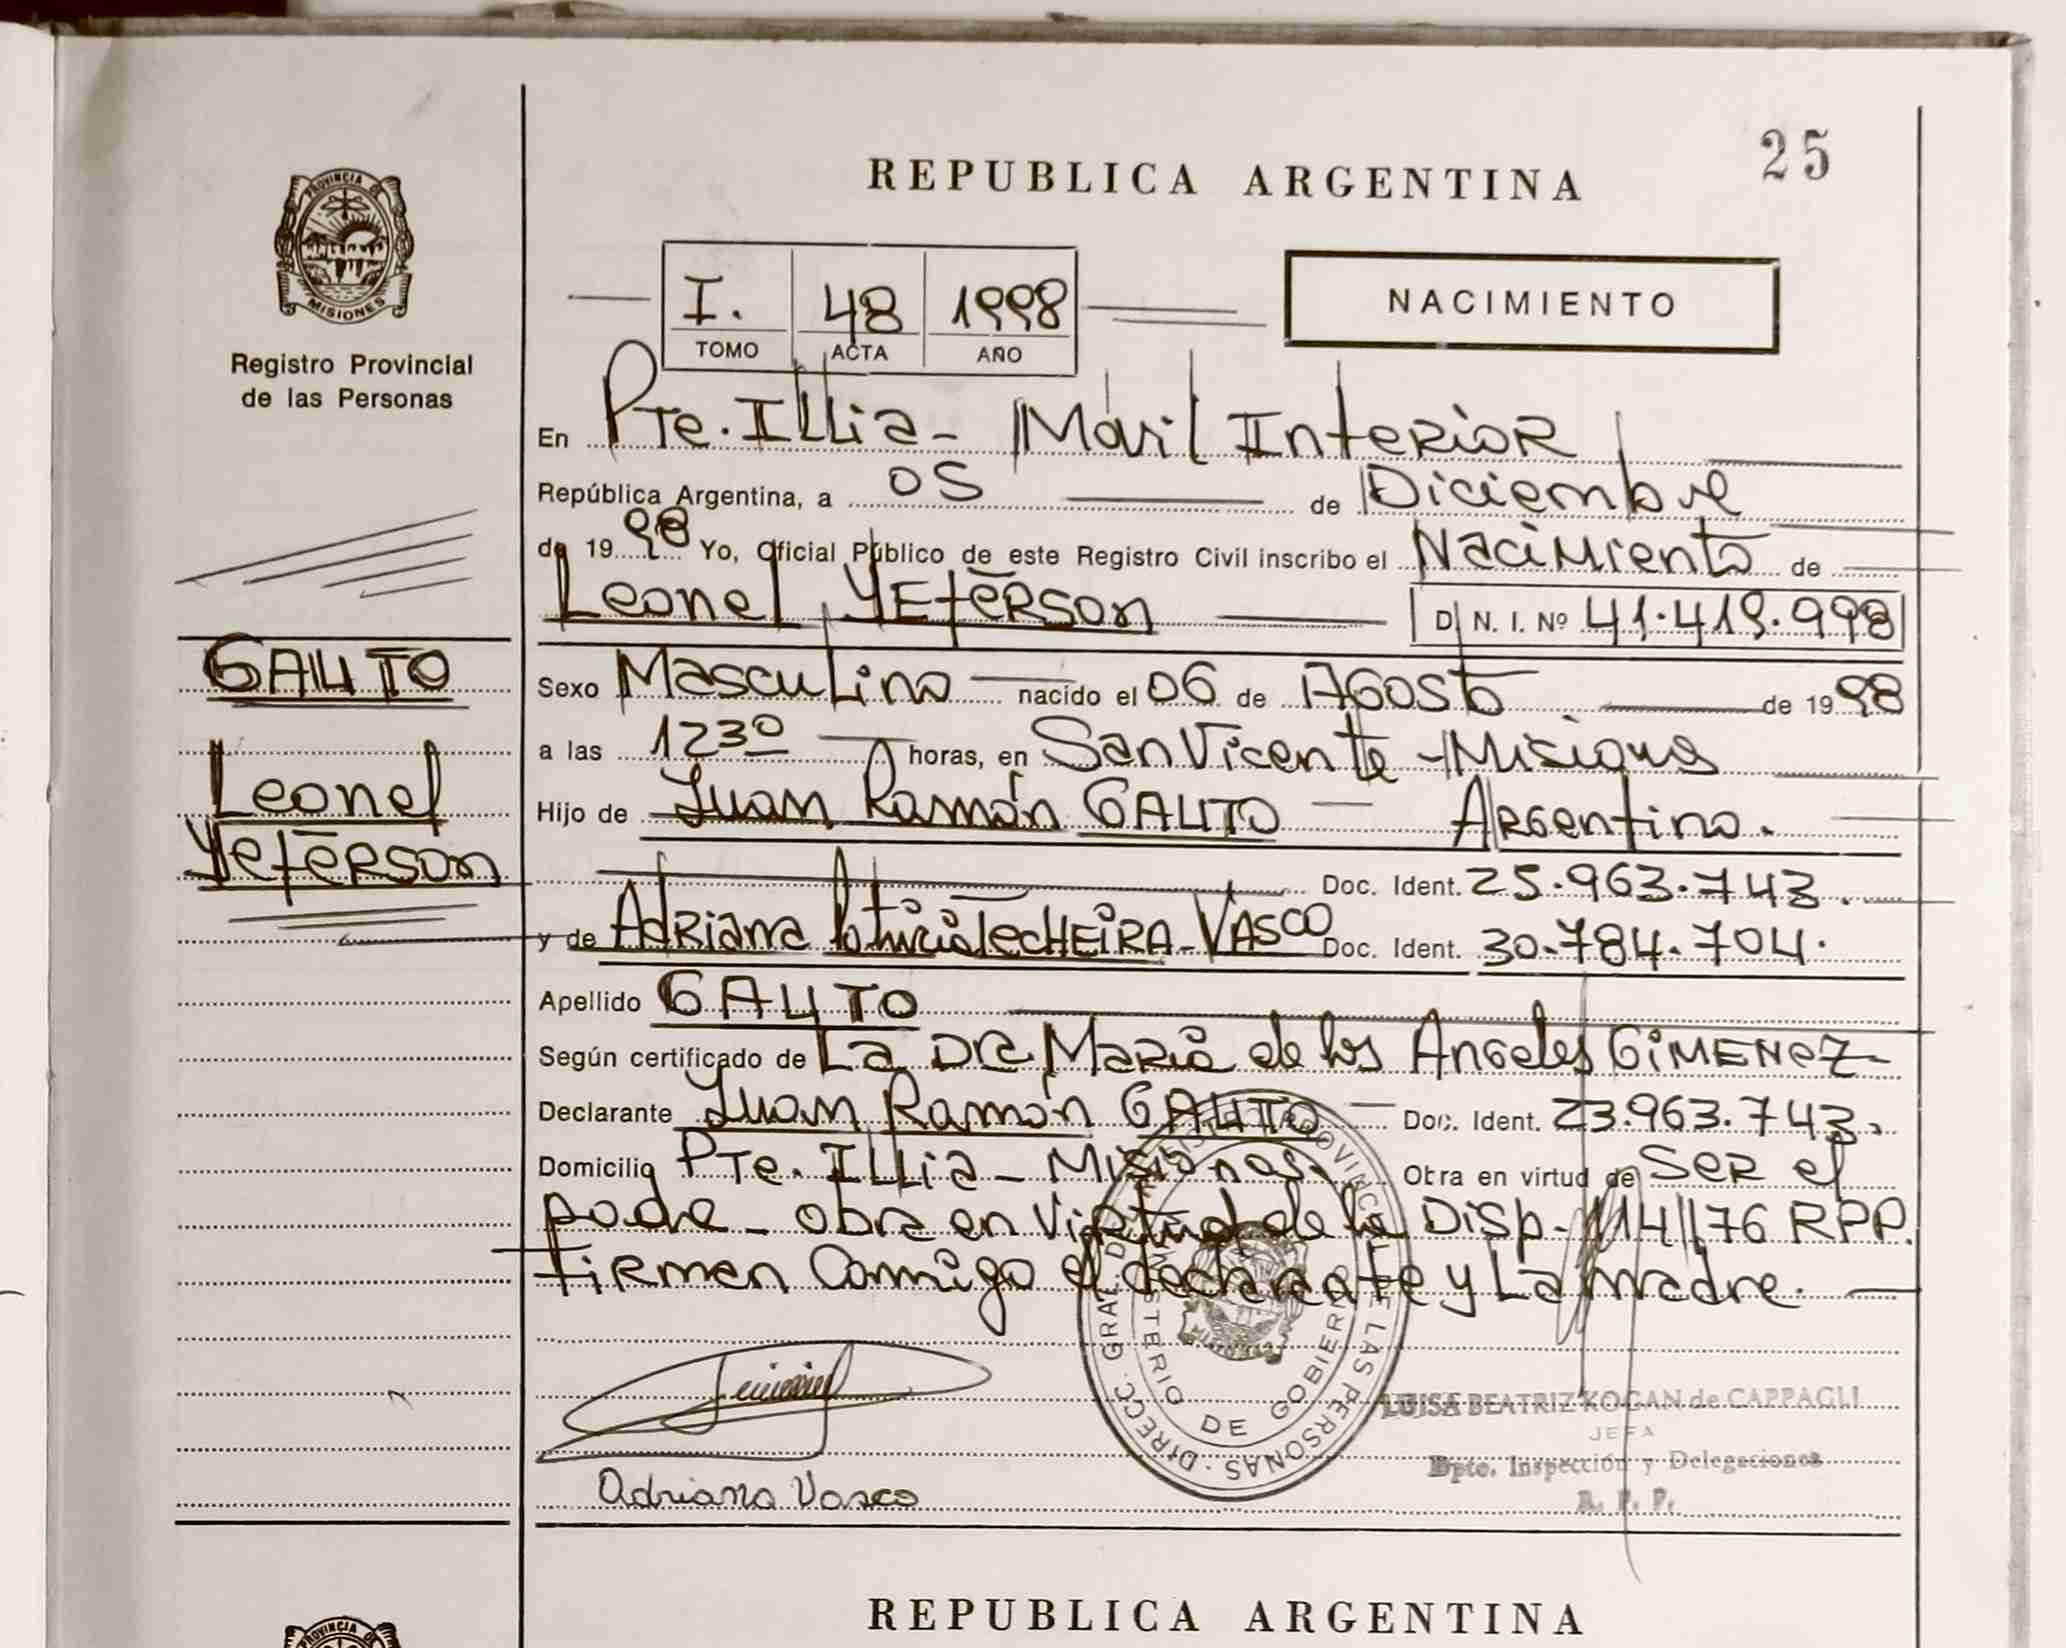 25
REPUBLICA ARGENTINA
PROVINCIA DE
MISIONES
Registro Provincial
de las Personas
I. 48 1998
TOMO ACTA AÑO
NACIMIENTO
En Pte. Illia - Móvil Interior
República Argentina, a 05 de Diciembre
de 1998 Yo, Oficial Público de este Registro Civil inscribo el Nacimiento de
Leonel Yeferson D. N. I. Nº 41.419.998
GAUTO
Leonel
Yeferson
Sexo Masculino nacido el 06 de Agosto de 1998
a las 1230 horas, en San Vicente - Misiones
Hijo de Juan Ramón GAUTO Argentino.
Doc. Ident. 25.963.743.
y de Adriana Patricia TecHEIRA - VASCO Doc. Ident. 30.784.704.
Apellido GAUTO
Según certificado de La DRa María de los Angeles GIMENEZ
Declarante Juan Ramón GAUTO Doc. Ident. 23.963.743.
Domicilio Pte. Illia - Misiones Obra en virtud de Ser el
padre - obra en virtud de la Disp - 114/176 RPP.
firman Conmigo el declarante y La madre.
Adriana Vasco
DIRECC. GRAL. DEL REGISTRO PROVINCIAL DE LAS PERSONAS
MINISTERIO DE GOBIERNO
MISIONES
LUISA BEATRIZ KOGAN de CAPPAGLI
JEFA
Dpto. Inspección y Delegaciones
R. P. P.
REPUBLICA ARGENTINA
PROVINCIA DE